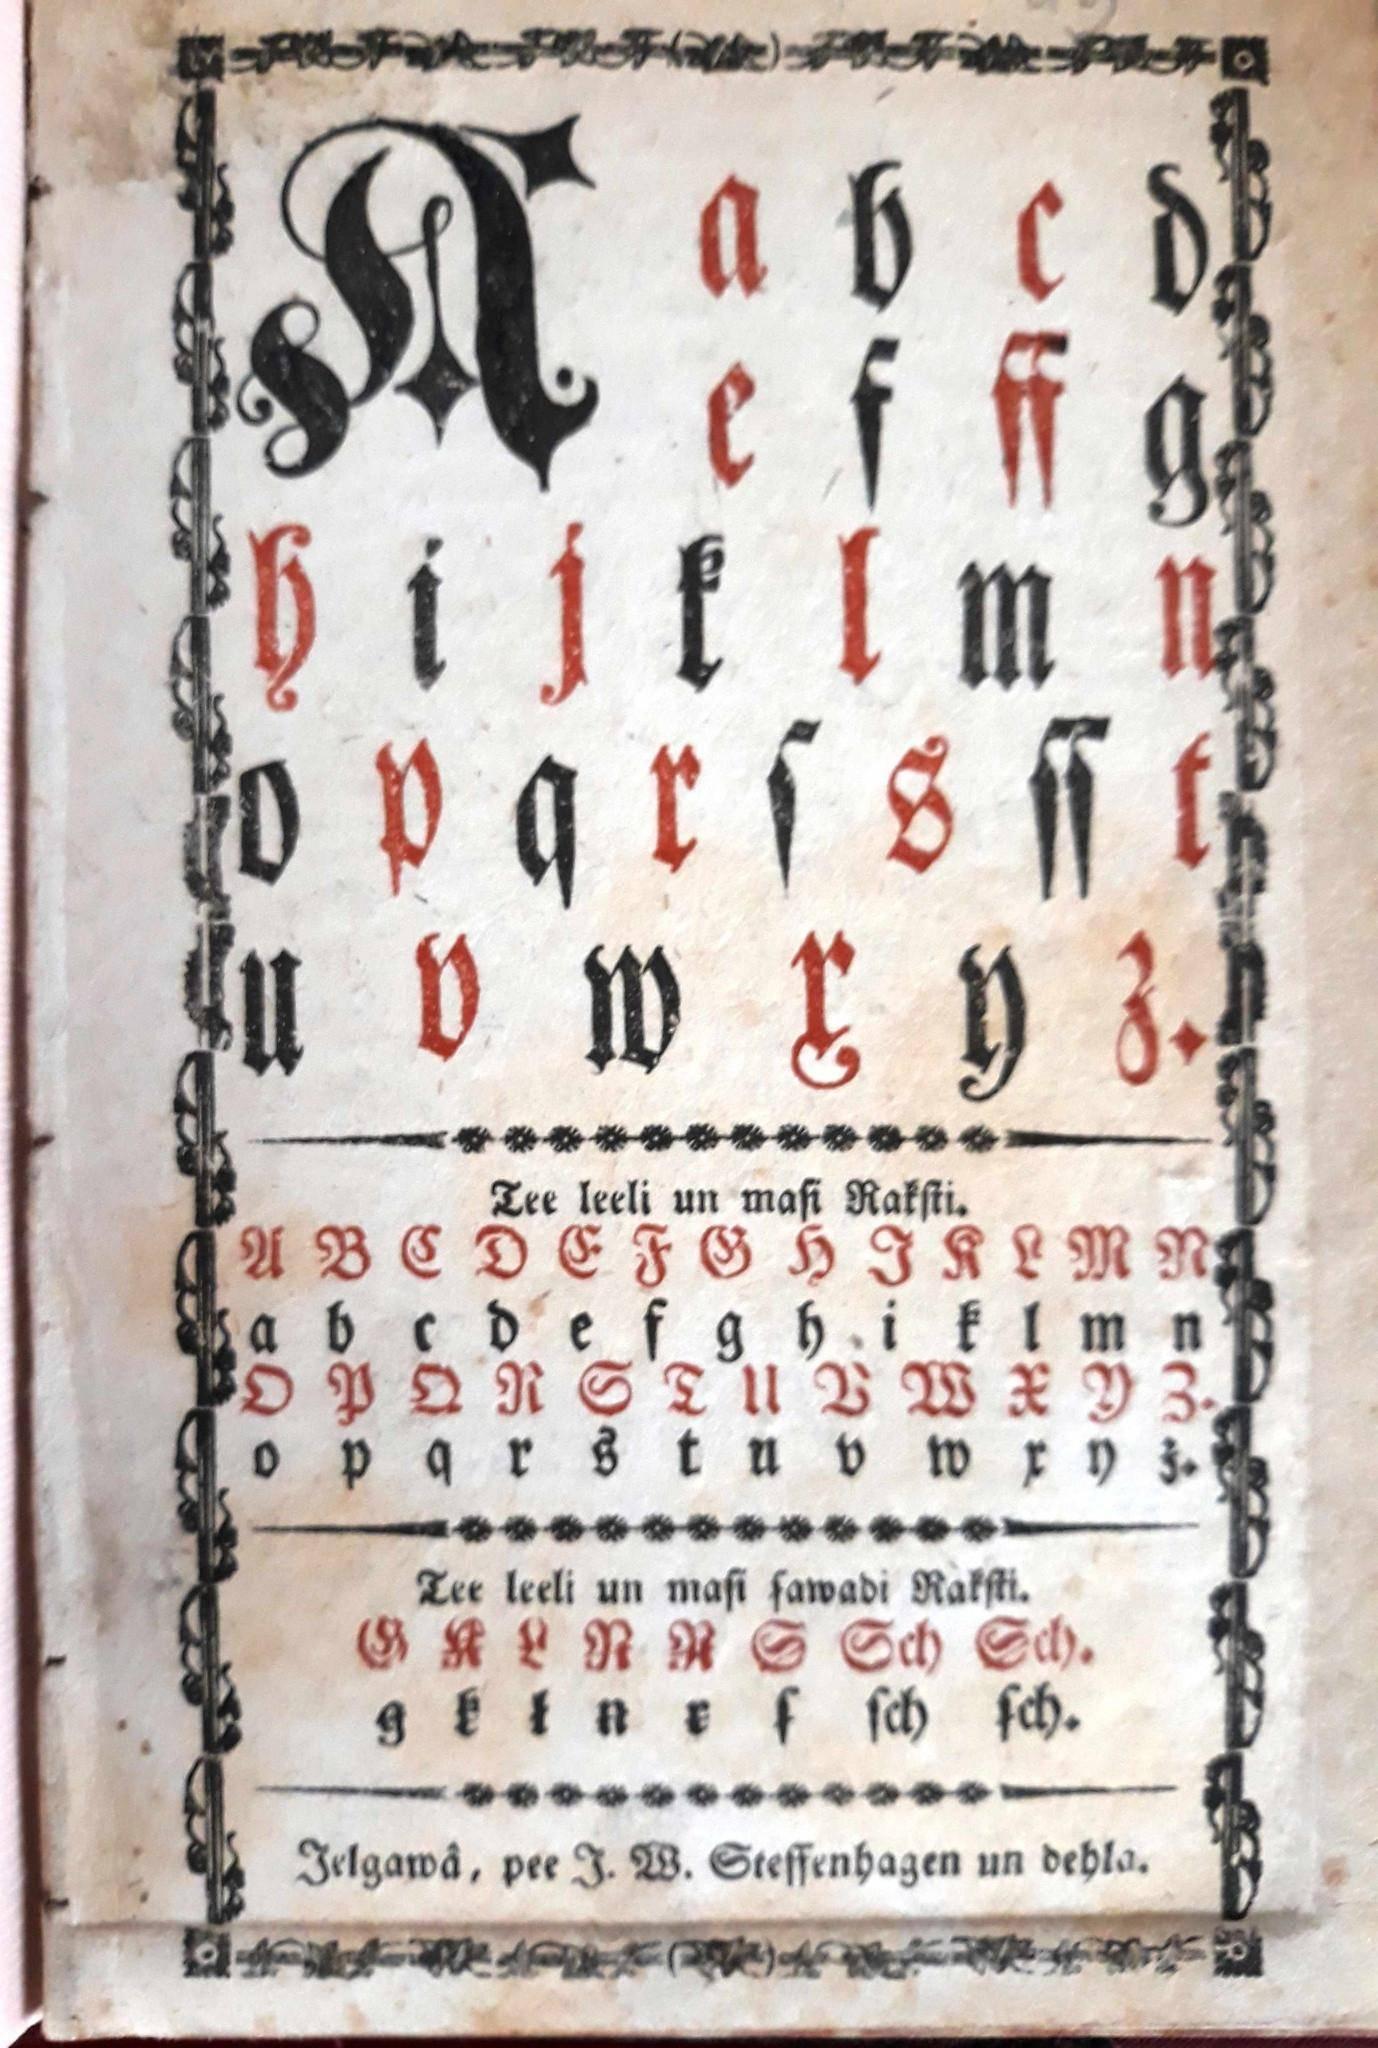 A a b c d
e f ff g
h i j k l m n
o p q r ſ s ſſ t
u v w x y z.
Tee leeli un maſi Rakſti.
A B C D E F G H I K L M N
a b c d e f g h i k l m n
O P Q R S T U V W X Y Z.
o p q r s t u v w x y z.
Tee leeli un maſi ſawadi Rakſti.
G K L N R S Sch Sch.
g k l n r ſ ſch ſch.
Jelgawâ, pee J. W. Steffenhagen un dehla.